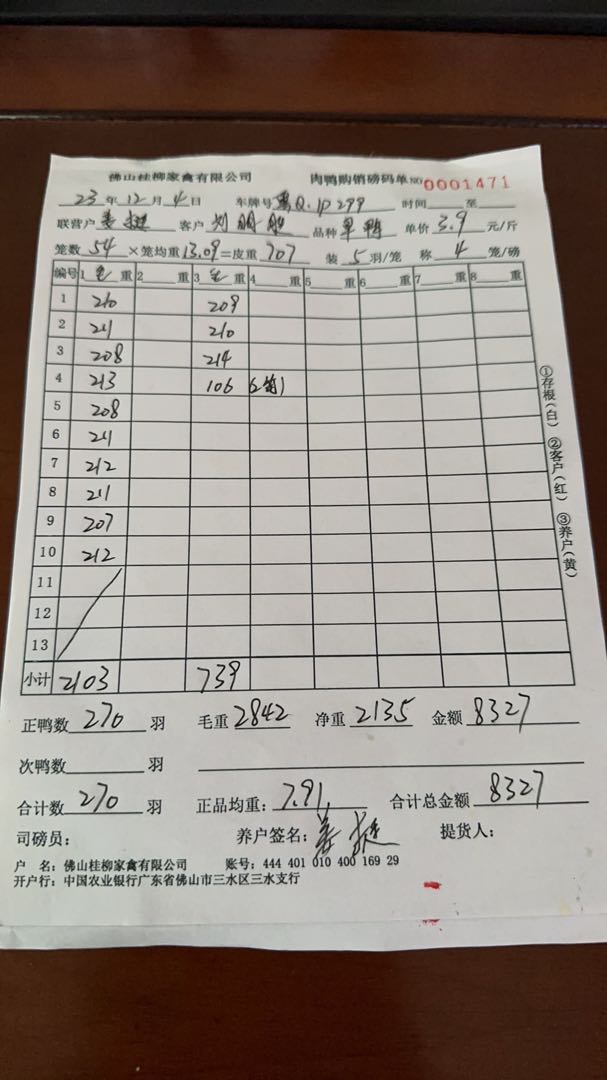 佛山桂柳家禽有限公司 肉鸭购销磅码单 NO 0001471
23年12月4日 车牌号 Q·1P299 时间 至
联营户 姜挺 客户 刘 品种 单鸭 单价 3.9 元/斤
笼数 54 ×笼均重 13.09 =皮重 707 装 5 羽/笼 称 4 笼/磅
编号 1 毛 重 2 重 3 毛 重 4 重 5 重 6 重 7 重 8 重
1 210 209
2 211 210
3 208 214
4 213 106 (2笼)
5 208
6 211
7 212
8 211
9 207
10 212
11
12
13
小计 2103 739
正鸭数 270 羽 毛重 2842 净重 2135 金额 8327
次鸭数 羽
合计数 270 羽 正品均重: 7.91 合计总金额 8327
司磅员: 养户签名: 姜挺 提货人:
户 名: 佛山桂柳家禽有限公司 账号: 444 401 010 400 169 29
开户行: 中国农业银行广东省佛山市三水区三水支行
①存根(白) ②客户(红) ③养户(黄)